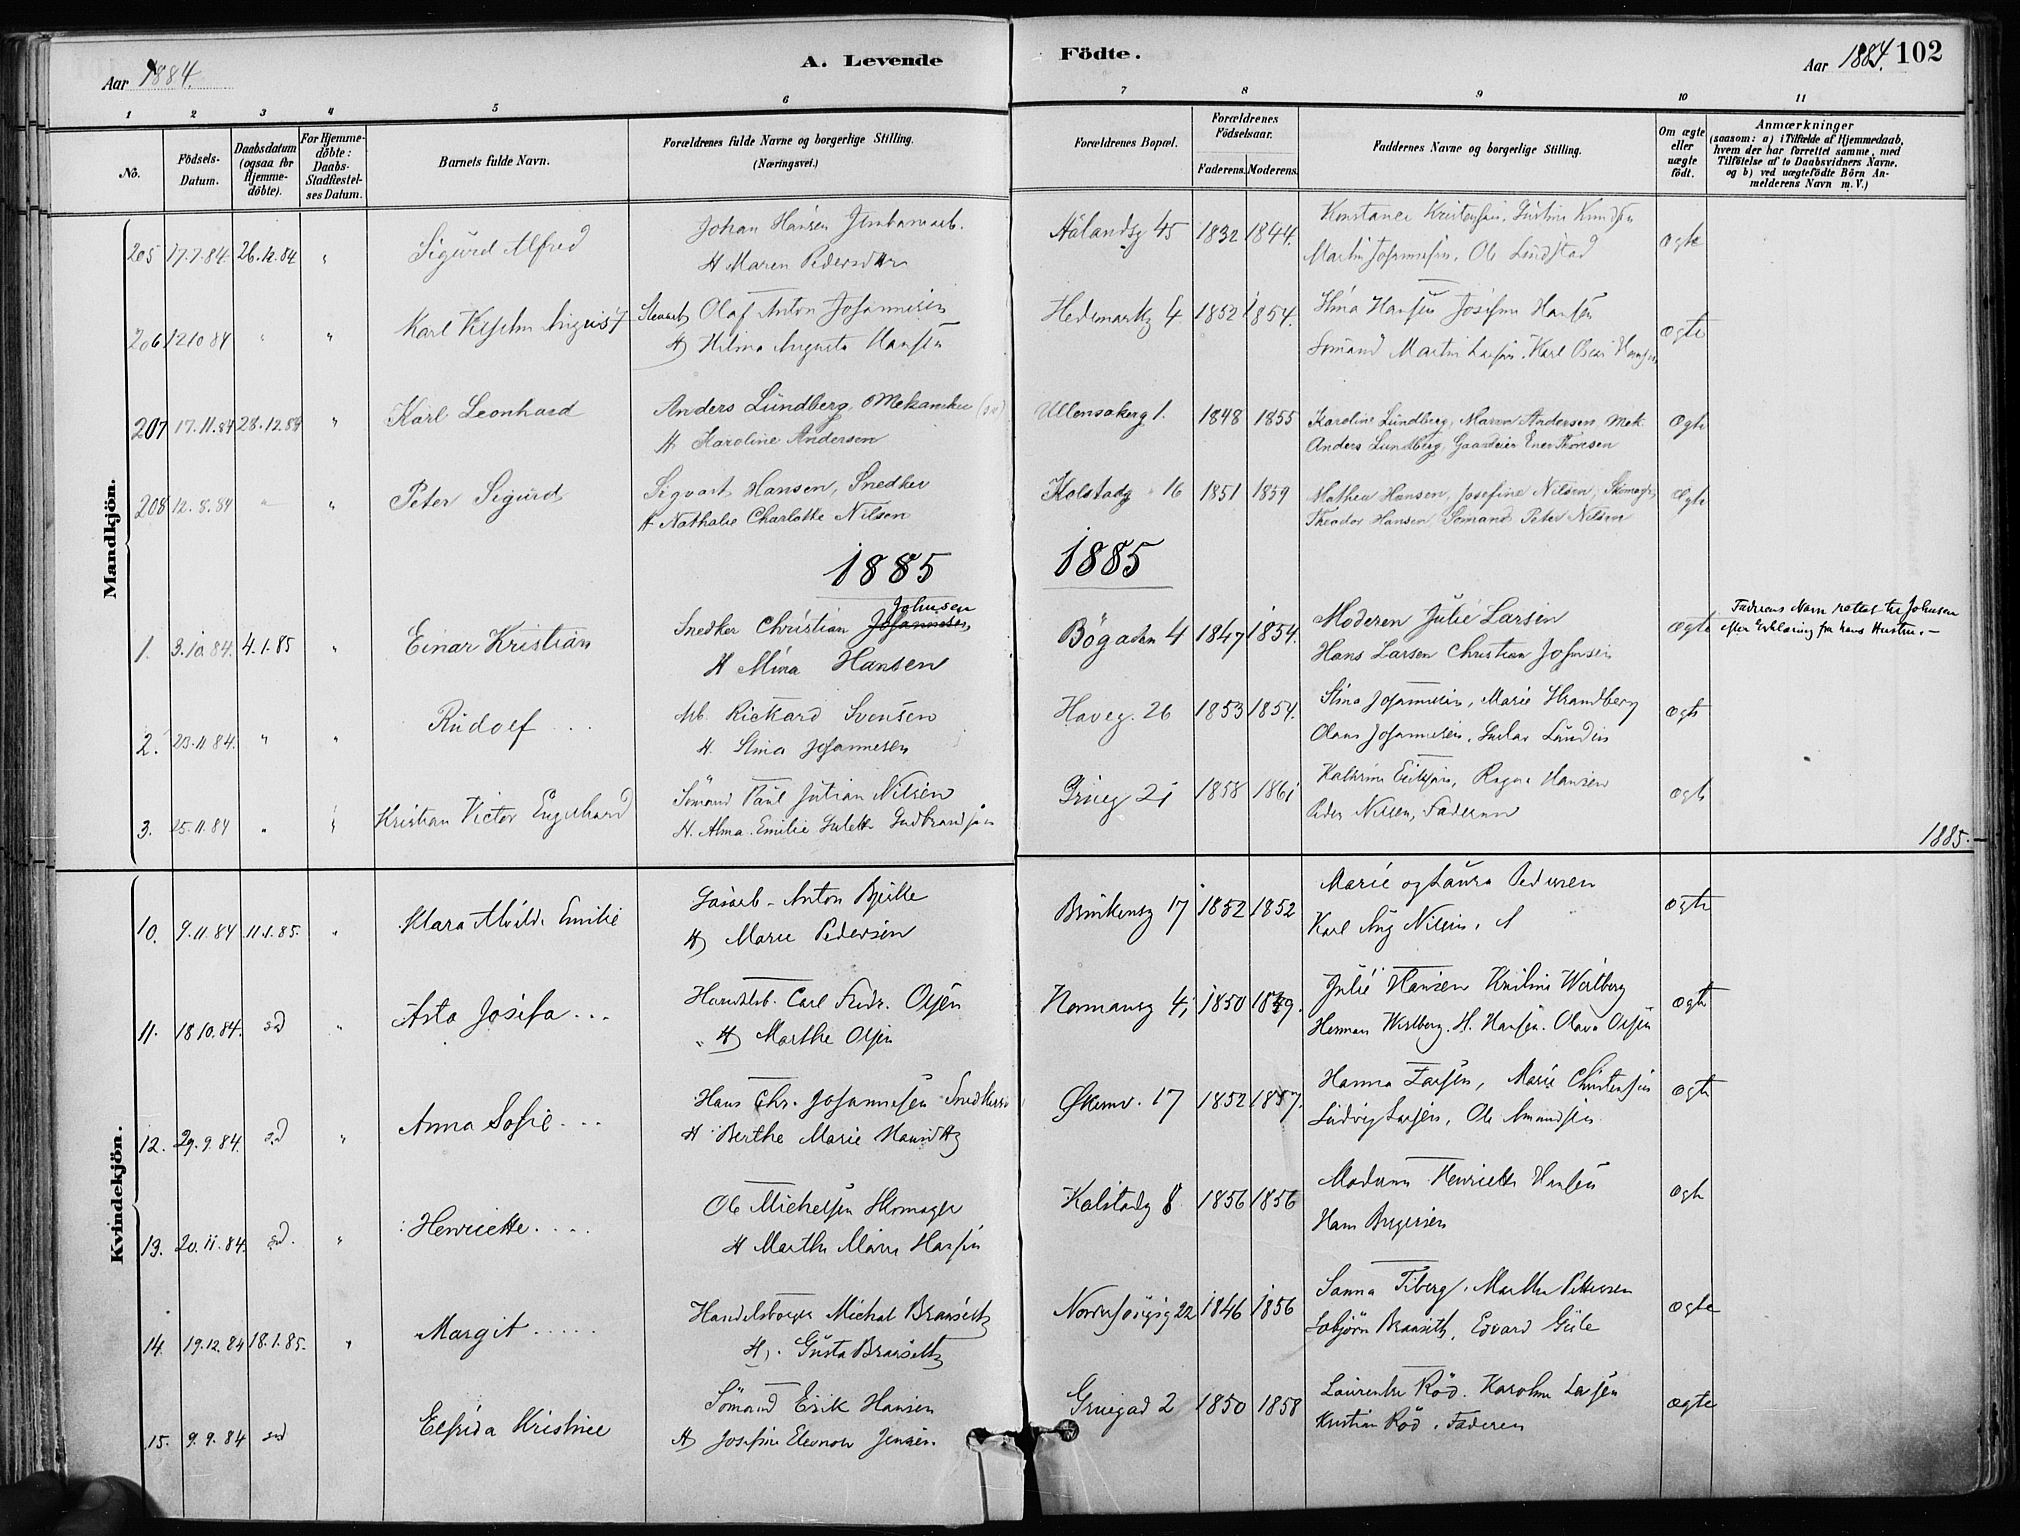 Aar 1884.
A. Levende
Födte.
Aar 1884. 102
1 2 3 4 5 6 7 8 9 10 11
No.
Födsels-Datum.
Daabsdatum (ogsaa for Hjemme-döbte).
For Hjemme-döbte: Daabs-Stadfæstel-ses Datum.
Barnets fulde Navn.
Forældrenes fulde Navne og borgerlige Stilling.
(Næringsvei.)
Forældrenes Bopæl.
Forældrenes Födselsaar.
Faderens. Moderens.
Faddernes Navne og borgerlige Stilling.
Om ægte eller uægte födt.
Anmærkninger
(saasom: a) i Tilfælde af Hjemmedaab,
hvem der har forrettet samme, med
Tilföielse af to Daabsvidners Navne,
og b) ved uægtefödte Börn An-
melderens Navn m. V.)
Mandkjön.
205 17.7.84. 26.12.84 " Sigurd Alfred Johan Hansen Jernbanearb. Aalandsg 45 1832 1844. Konstance Kristensen, Justine Knudsen ægte
H Maren Pedersdtr Martin Johannesen, Ole Lundstad
206 12.10.84 " " Karl Vilhelm August Olaf Anton Johannesen Hedemarksg 4. 1852 1854. Stina Hansen Josefine Hansen ægte
H Hilma Augusta Hansen Sømand Martin Larsen. Karl Oscar
207 17.11.84 28.12.84 " Karl Leonhard Anders Lundberg, Mekaniker Ullensakerg 1. 1848 1855 Karoline Lundberg, Maren Andersen, Mek. ægte
H Karoline Andersen Anders Lundberg, Gaardeier Thoresen
208 12.8.84 " " Peter Sigurd Sigvart Hansen, Snedker Kolstadg 16 1851 1859 Mathea Hansen, Josefine Nilsen, Skomager ægte
H Nathalie Charlotte Nilsen Theodor Hansen, Sømand Peter Nilsen
1885 1885
1. 3.10.84. 4.1.85 " Einar Kristian Snedker Christian Johannesen Johnsen Bögaden 4 1847 1854. Moderen Julie Larsen ægte Faderens Navn rettet til Johnsen
H Mina Hansen Hans Larsen Christian Johnsen efter Erklæring fra hans Hustru. —
2. 23.11.84. " " Rudolf Arb. Rickard Svensen Haveg. 26 1853 1854. Stina Johannesen, Marie Strandberg ægte
H. Stina Johannesen Olaus Johannesen, Gustav Lundin
3. 25.11.84 " " Kristian Victor Engelhard Sømand Paul Julian Nilsen Grüneg 21 1858 1861 Kathrine Eriksen, Ragna Hansen ægte
H. Alma Emilie Gulette Gudbrandsen Peder Nilsen, Faderen
1885.
Kvindekjön.
10. 9.11.84 11.1.85. " Klara Alvilde Emilie Anton Bjelke Brinkensg 17 1852 1852 Marie og Laura Pedersen ægte
H Marie Pedersen Karl Aug Nilsen.
11. 18.10.84. sd " Asta Josefa Handelsb. Carl Fredr. Olsen Normansg 41 1850 1849. Julie Hansen Kristine Westberg ægte
H Marthe Olsen Herman Westberg. H. Hansen. Olava Olsen
12. 29.9.84. sd " Anna Sofie Hans Chr. Johannesen Snedkersv Økernv. 17 1852 1857. Hanna Larsen, Marie Christensen ægte
H Berthe Marie Ludvig Larsen, Ole Amundsen
13. 20.11.84. sd. " Henriette Ole Michelsen Skomager Kolstadg 8 1856 1856 Moderen Henriette Hansen ægte
H Marthe Marie Hansen Hans Birgersen
14. 19.12.84 18.1.85. " Margit Handelsborger Michal Branseth 22 1846 1856 Sanna Tiberg, Marthe Pettersen ægte
H. Gusta Branseth Branseth, Edvard Gule
15. 9.9.84 sd Elfrida Kristine Sömand Erik Hansen Gruegad 2 1850 1858 Laurentse Rød. Karoline Larsen ægte
H Josefine Eleonore Jensen. Kristian Rød. Faderen